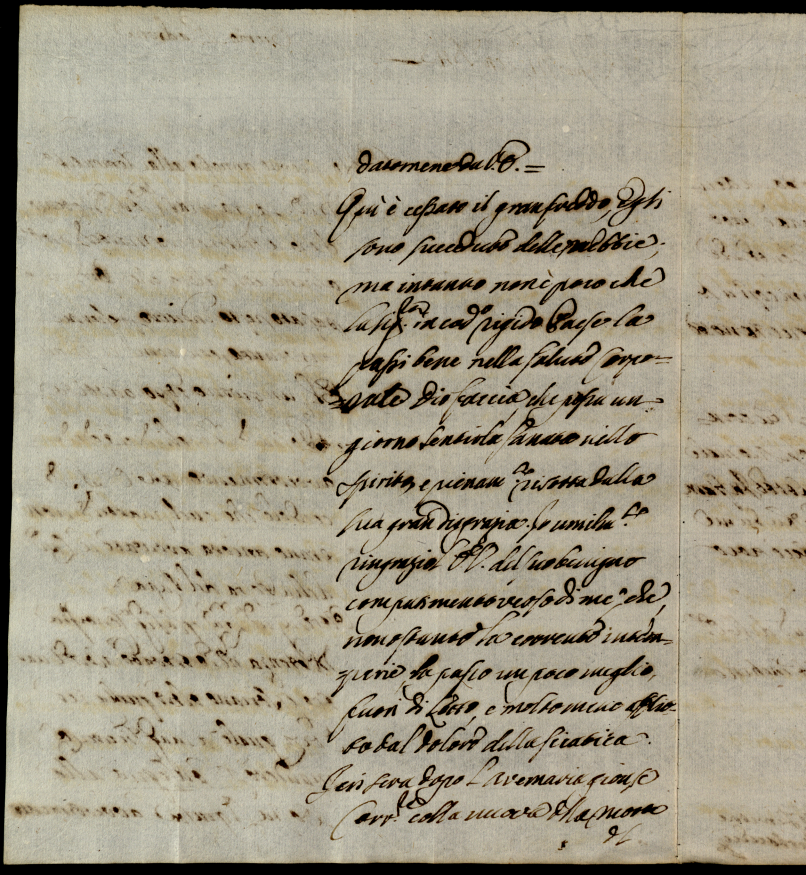 datomene da V. E. =
Qui è cessato il gran freddo, Egli
sono succedute delle nebbie,
ma intanto non è poco che
la Sig.ra in cod.o rigido Paese la
passi bene nella salute corpo=
=rale Dio faccia che possa un
giorno sentirla sanata nello
spirito, e pienam.te risorta dalla
sua gran disgrazia. Io umilm.te
ringrazio V. E. del suo benigno
compatimento verso di me, che
non ostante la corrente intem=
perie la passo un poco meglio,
fuori di Letto, e molto meno afflit=
to dal dolore della sciatica.
Jeri sera dopo l'avemaria giunse
Corr.re colla nuova della morte